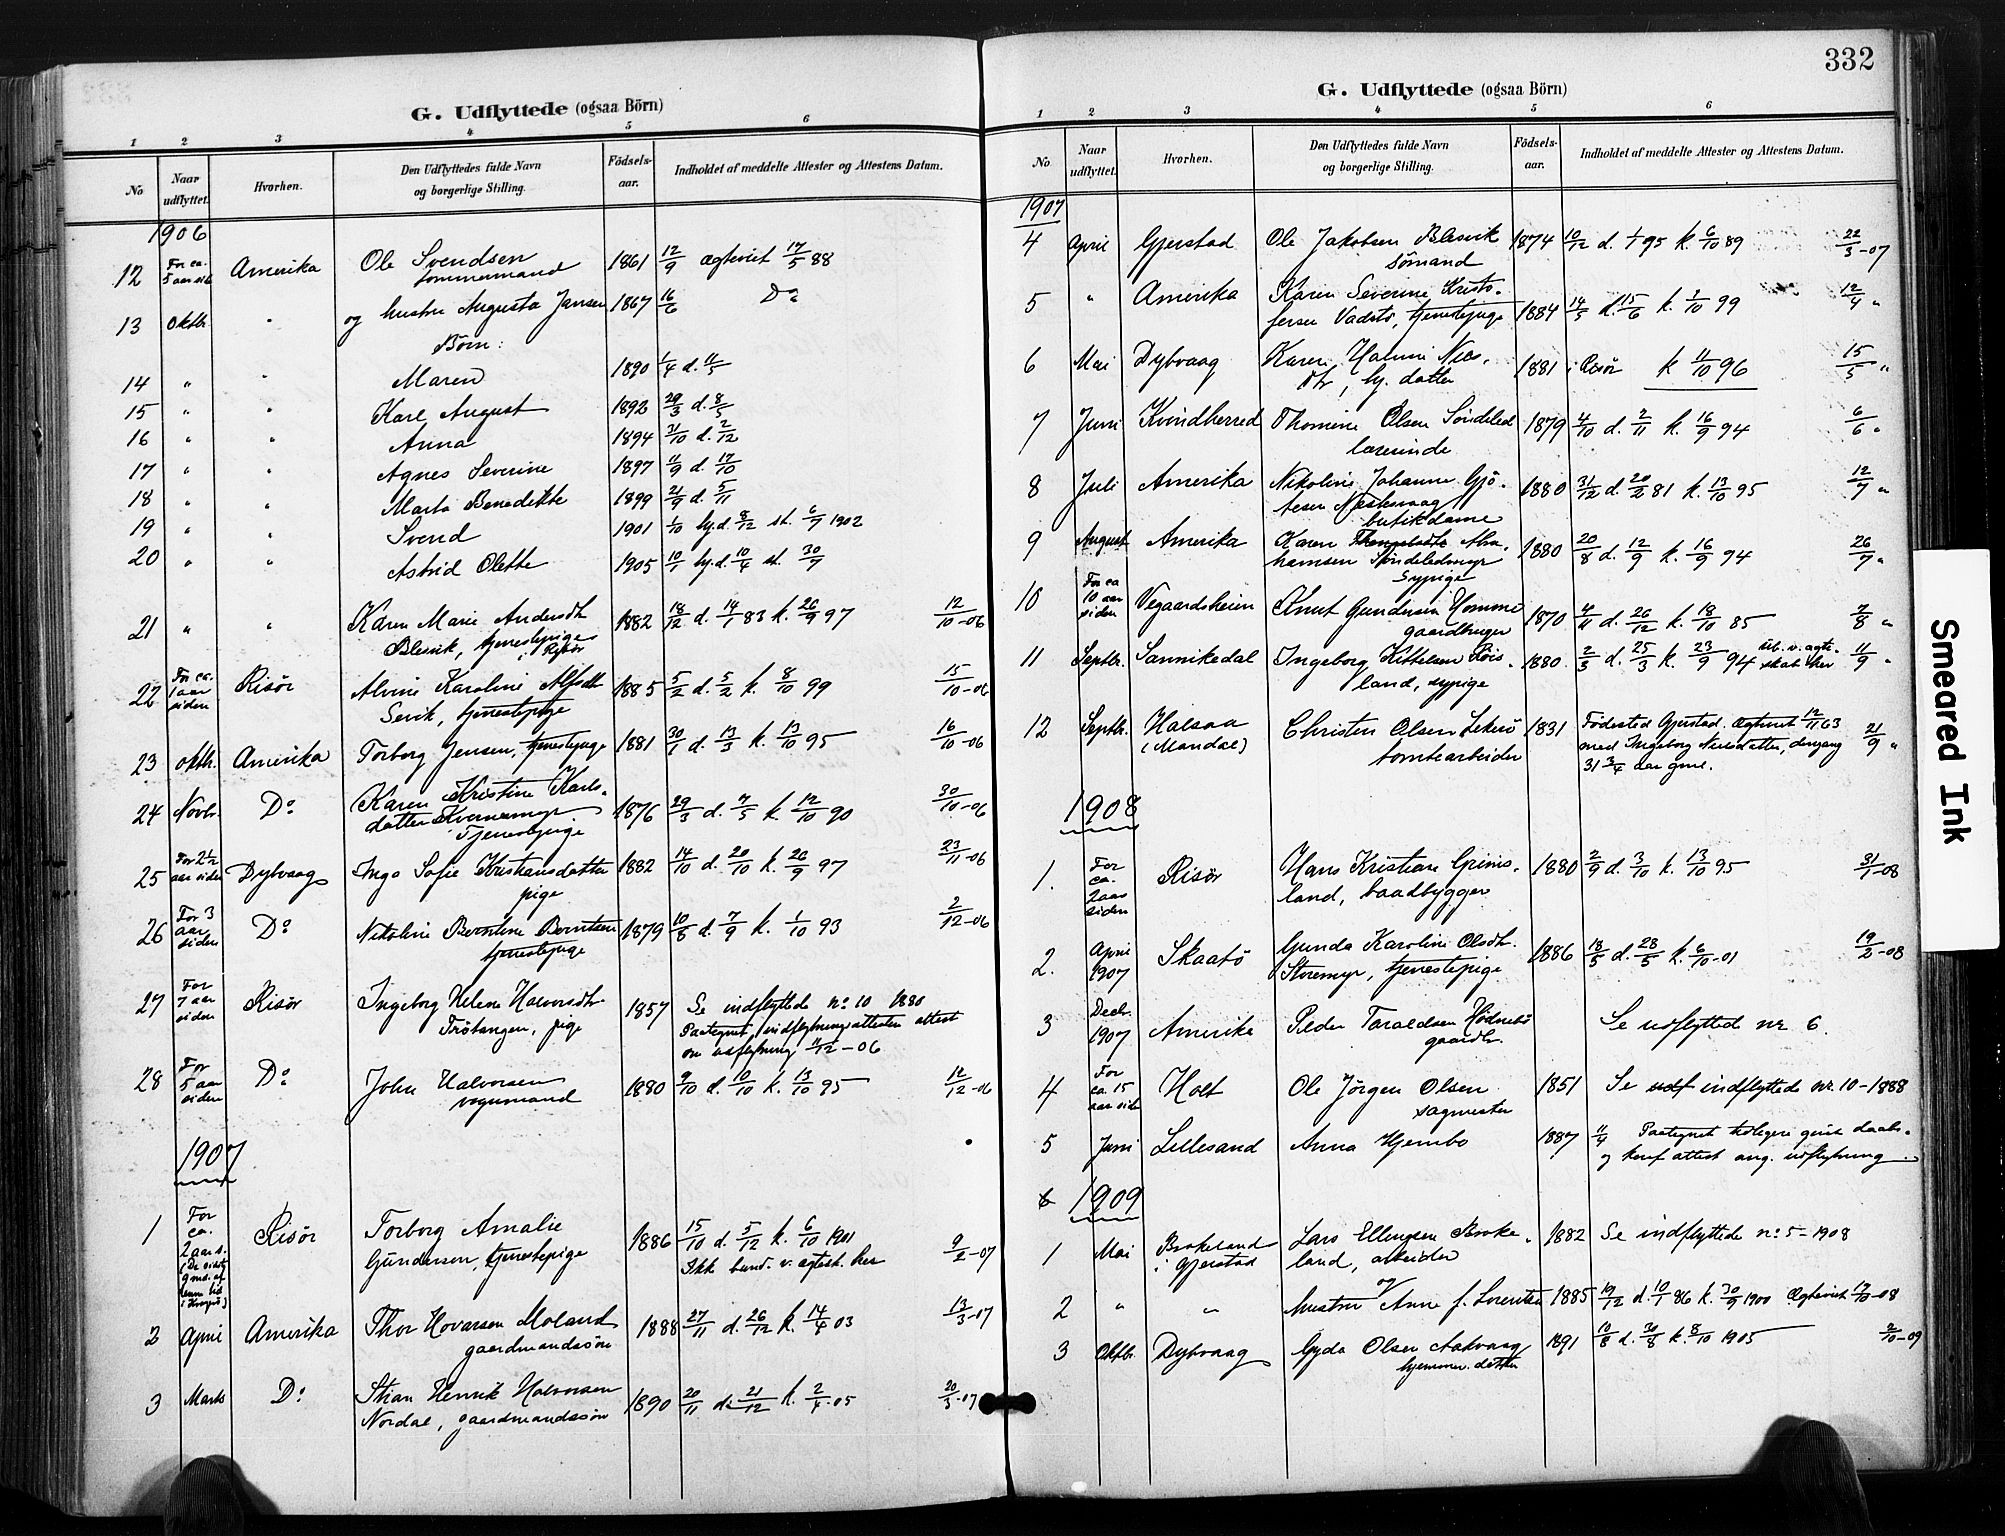 G. Udflyttede (ogsaa Börn)
1 2 3 4 5 6
No Naar udflyttet. Hvorhen. Den Udflyttedes fulde Navn og borgerlige Stilling. Födsels-aar. Indholdet af meddelte Attester og Attestens Datum.
1906
12 For ca. 5 aar sid. Amerika Ole Svendsen 1861 12/9 ægteviet 17/5 88
tömmermand
13 Oktbr. " og hustru Augusta Jansen 1867 16/6 Do
Börn:
14 " " Maren 1890 1/4 d. 11/5
15 " " Karl August 1892 29/3 d. 8/5
16 " " Anna 1894 31/10 d. 2/12
17 " " Agnes Severine 1897 11/9 d. 17/10
18 " " Marta Benedikte 1899 21/9 d. 5/11
19 " " Svend 1901 1/10 hj.d. 8/12 st. 6/7 1902
20 " " Astrid Olette 1905 10/1 hj.d. 10/4 st. 30/7
21 " " Karen Marie Andersdtr 1882 18/12 d. 14/1 83 k. 26/9 97 12/10-06
Blesvik, tjenestepige
i Risör
22 For ca. 1 aar siden Risör Alvine Karoline Alfsdtr 1885 5/2 d. 5/2 k. 8/10 99 15/10-06
Sevik, tjenestepige
23 Oktbr. Amerika Torborg Jensen, tjenestepige 1881 30/1 d. 13/3 k. 13/10 95 16/10-06
24 Novbr. Do Karen Kristine Karls- 1876 29/3 d. 7/5 k. 12/10 90 30/10-06
datter Kvernemyr
Tjenestepige
25 For 2½ aar siden Dybvaag Inga Sofie Kristiansdatter 1882 14/10 d. 20/10 k. 26/9 97 23/11-06
pige
26 For 3 aar siden Do Nikoline Berntine Berntsen 1879 10/8 d. 7/9 k. 1/10 93 2/12-06
tjenestepige
27 For 7 aar siden Risör Ingeborg Helene Halvorsdtr 1857 Se indflyttede no 10 1880
Trötangen, pige Paategnet indflytningsattesten attest
om udflytning 11/12-06
28 For 5 aar siden Do John Halvorsen 1880 9/10 d. 10/10 k. 13/10 95 12/12-06
vognmand
1907
1 For ca. 2 aar s. Risör Torborg Amalie 1886 15/10 d. 5/12 k. 6/10 1901
(De sidste 9 md. af
Gundersen, tjenestepige Ikk bund. v. ægtesk. her 9/2-07
2 April Amerika Thor Hovarsen Moland 1888 27/11 d. 26/12 k. 14/4 03 13/3-07
gaardmandssön
3 Marts Do Stian Henrik Halvorsen 1890 20/11 d. 21/12 k. 2/4-05 20/3-07
Nordal, gaardmandssön
332
G. Udflyttede (ogsaa Börn)
1 2 3 4 5 6
No Naar udflyttet. Hvorhen. Den Udflyttedes fulde Navn og borgerlige Stilling. Födsels-aar. Indholdet af meddelte Attester og Attestens Datum.
1907
4 April Gjerstad Ole Jakobsen Blesvik 1874 10/12 d. 1/1 95 k. 6/10 89 22/3-07
sömand
5 " Amerika Karen Severine Kristo-
fersen Vadstö, tjenestepige 1884 14/5 d. 15/6 k. 1/10 99 12/4 "
6 Mai Dybvaag Karen Halvine Nils- 1881 i Risör k 11/10 96 15/5 "
dtr, hj. datter
7 Juni Kvindherred Thomine Olsen Söndeled 1879 4/10 d. 2/11 k. 16/9 94 6/6 "
lærerinde
8 Juli Amerika Nikoline Johanne Gjö- 1880 31/12 d. 20/2 81 k. 13/10 95 12/7 "
butikdame
9 August Amerika Karen Abra- 1880 20/8 d. 12/9 k. 16/9 94 26/7 "
hamsen Söndeledmyr
Sypige
10 For ca 10 aar siden Vegaardsheien Knut Gundersen Homme 1870 4/11 d. 26/12 k. 18/10 85 7/8 "
gaardbruger
11 Septbr. Sannikedal Ingeborg Kittelsen Röis- 1880 2/3 d. 25/3 k. 23/9 94 v. ægte- 11/9 "
land, sypige skab her
12 Septbr. Halsaa Christen Olsen Leksö 1831 Födested Gjerstad. Ægteviet 12/11 63
(Mandal) tomtearbeider med Ingeborg Nilsdatter, dengang 21/9 "
31 3/4 aar gml.
1908
1. For ca. 2 aar siden Risör Hans Kristian Grims- 1880 2/9 d. 3/10 k. 13/10 95 31/1-08
land, baadbygger
2. April 1907 Skaatö Gunda Karoline Olsdtr. 1886 18/5 d. 28/5 k. 6/10-01 19/2-08
Storemyr, tjenestepige
3 Decbr. 1907 Amerika Peder Taraldsen Hödnebö Se udflytted nr 6.
gaardbr.
4 For ca. 15 aar siden Holt Ole Jörgen Olsen 1851 Se udf indflyttede nr. 10-1888
sagmester
5 Juni Lillesand Anna Hjembo 1887 11/4 Paategnet tidligere givet daabs-
og konf attest ang. udflytning
6 1909
1 Mai Brokeland Lars Ellingsen Broke- 1882 Se indflyttede no 5-1908
i Gjerstad land, arbeider
og
2 " " hustru Anne f. Lorentsen 1885 19/12 d. 10/1 86 k. 30/9 1900 Ægteviet 13/10-08
3 Oktbr. Dybvaag Gyda Olsen Aakvaag 1891 10/8 d. 30/8 k. 8/10 1905 2/10-09
hjemmev. datter
Smeared Ink